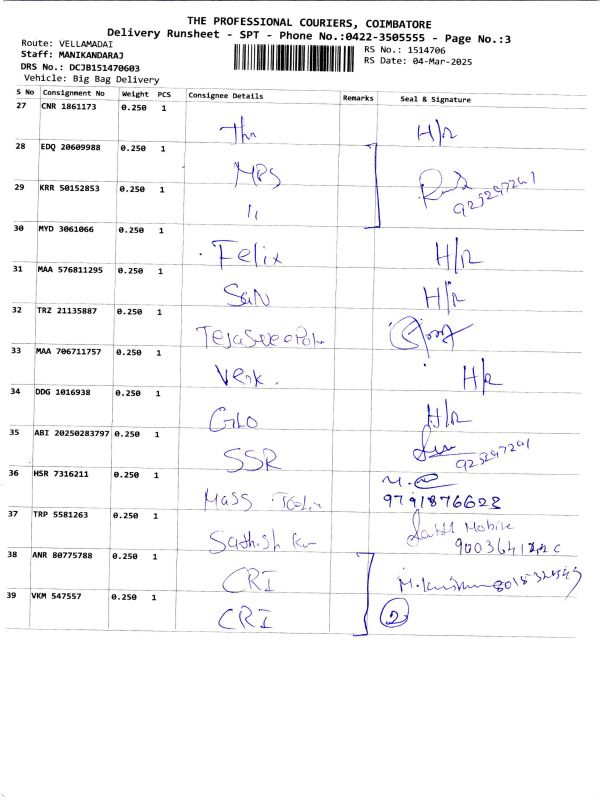 THE PROFESSIONAL COURIERS, COIMBATORE
Delivery Runsheet - SPT - Phone No.:0422-3505555 - Page No.:3
Route: VELLAMADAI
Staff: MANIKANDARAJ
DRS No.: DCJB151470603
Vehicle: Big Bag Delivery
RS No.: 1514706
RS Date: 04-Mar-2025
S No Consignment No Weight PCS Consignee Details Remarks Seal & Signature
27 CNR 1861173 0.250 1 H/R
28 EDQ 20609988 0.250 1 MPS
29 KRR 50152853 0.250 1 11
30 MYD 3061066 0.250 1 Felix H/R
31 MAA 576811295 0.250 1 SaN H/R
32 TRZ 21135887 0.250 1
33 MAA 706711757 0.250 1 H/R
34 DDG 1016938 0.250 1 GLO H/R
35 ABI 20250283797 0.250 1 SSR
36 HSR 7316211 0.250 1 Mass 9791876628
37 TRP 5581263 0.250 1 Sathish Mobile
38 ANR 80775788 0.250 1 CRI
39 VKM 547557 0.250 1 CRI 2